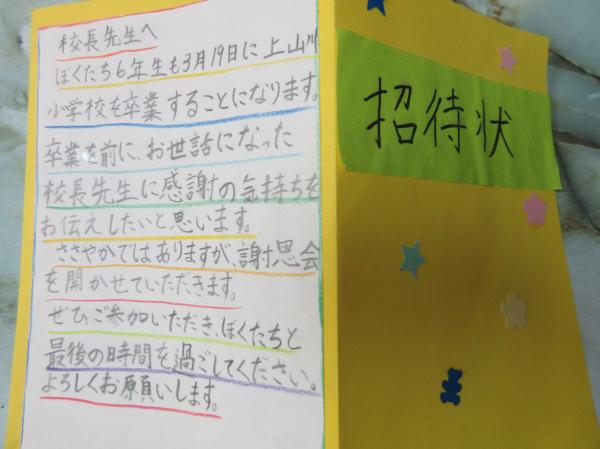 校長先生へ
ぼくたち6年生も3月19日に上山川
小学校を卒業することになります。
卒業を前に、お世話になった
校長先生に感謝の気持ちを
お伝えしたいと思います。
ささやかではありますが、謝恩会
を開かせていただきます。
ぜひご参加いただき、ぼくたちと
最後の時間を過ごしてください。
よろしくお願いします。
招待状